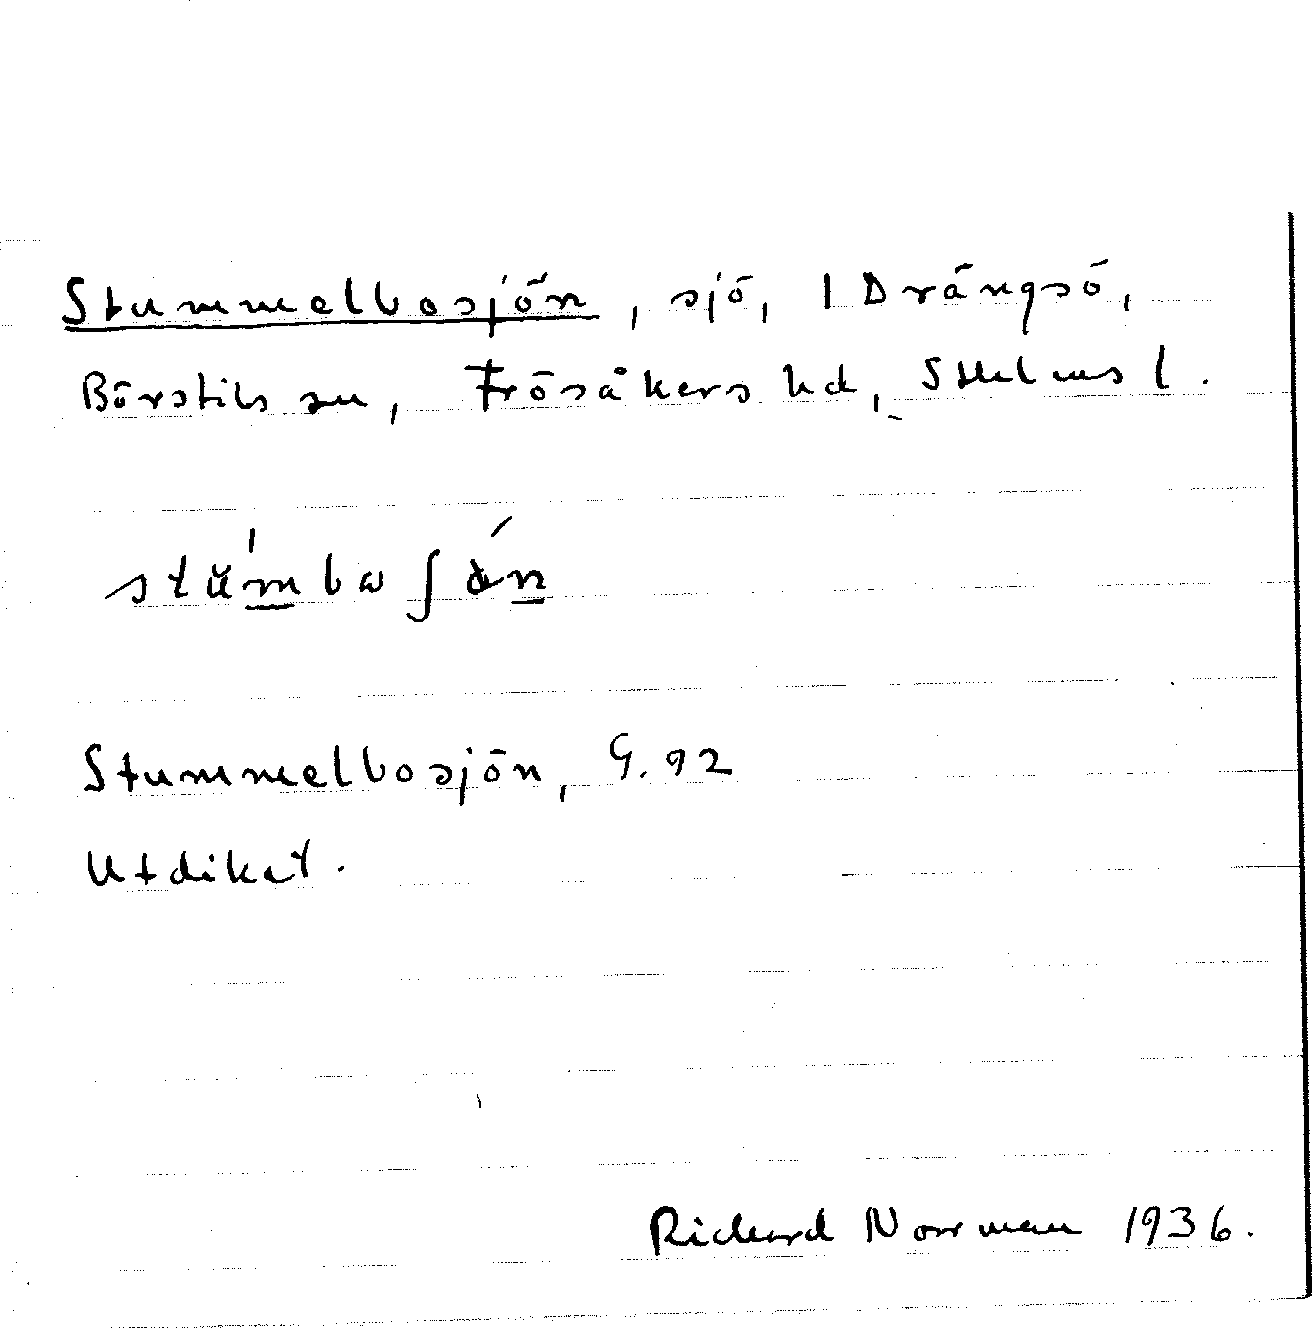 Stummelbosjön, sjö, 1 Drängsö,
Börstils sn, Frösåkers hd, Sthlms l.
stŭmbɷʃön
Stummelbosjön, G. 92
Utdikat.
Richard Norrman 1936.